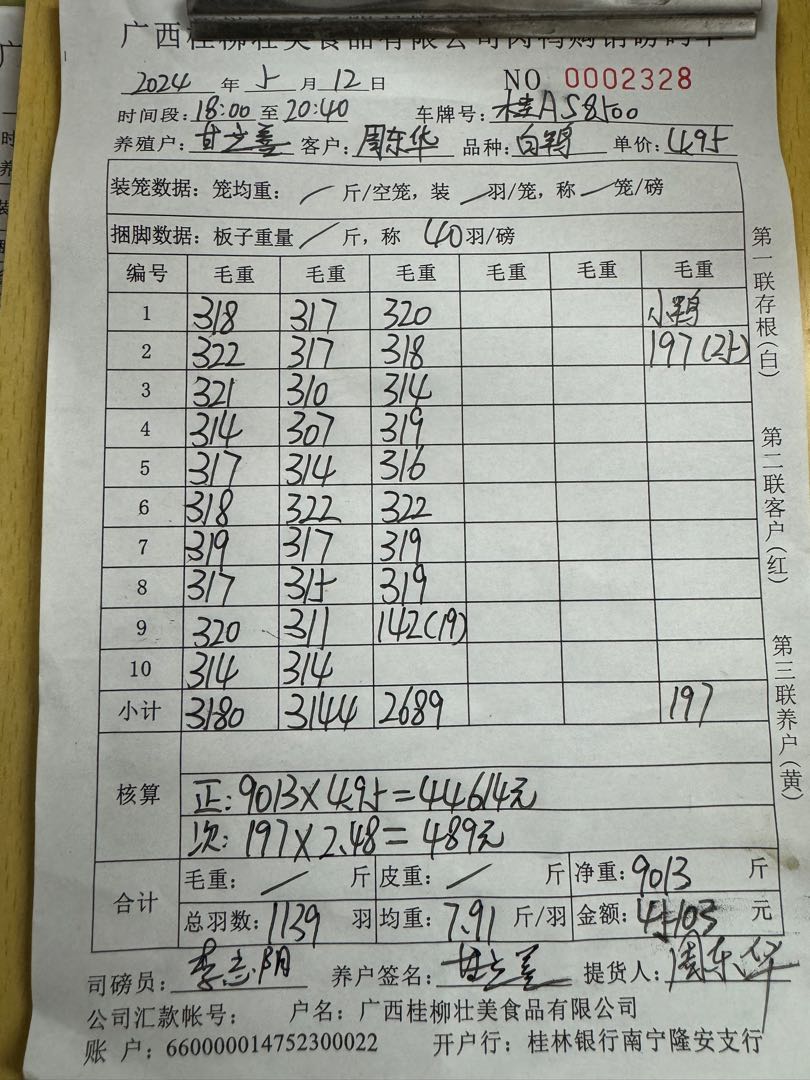 广西桂柳壮美食品有限公司肉鸭购销磅码单
2024 年 5 月 12 日 NO 0002328
时间段: 18:00 至 20:40 车牌号: 桂AS8500
养殖户: 甘 客户: 周东华 品种: 白鸭 单价: 4.95
装笼数据: 笼均重: / 斤/空笼, 装 / 羽/笼, 称 / 笼/磅
捆脚数据: 板子重量 / 斤, 称 40 羽/磅
编号 毛重 毛重 毛重 毛重 毛重 毛重
1 318 317 320 小鸭
2 322 317 318 197(25)
3 321 310 314
4 314 307 319
5 317 314 316
6 318 322 322
7 319 317 319
8 317 315 319
9 320 311 142(19)
10 314 314
小计 3180 3144 2689 197
核算
正: 9013×4.95=44614元
次: 197×2.48=489元
合计 毛重: / 斤 皮重: / 斤 净重: 9013 斤
总羽数: 1139 羽 均重: 7.91 斤/羽 金额: 45103 元
司磅员: 李志阴 养户签名: 甘 提货人: 周东华
公司汇款帐号: 户名: 广西桂柳壮美食品有限公司
账 户: 660000014752300022 开户行: 桂林银行南宁隆安支行
第一联存根(白)
第二联客户(红)
第三联养户(黄)